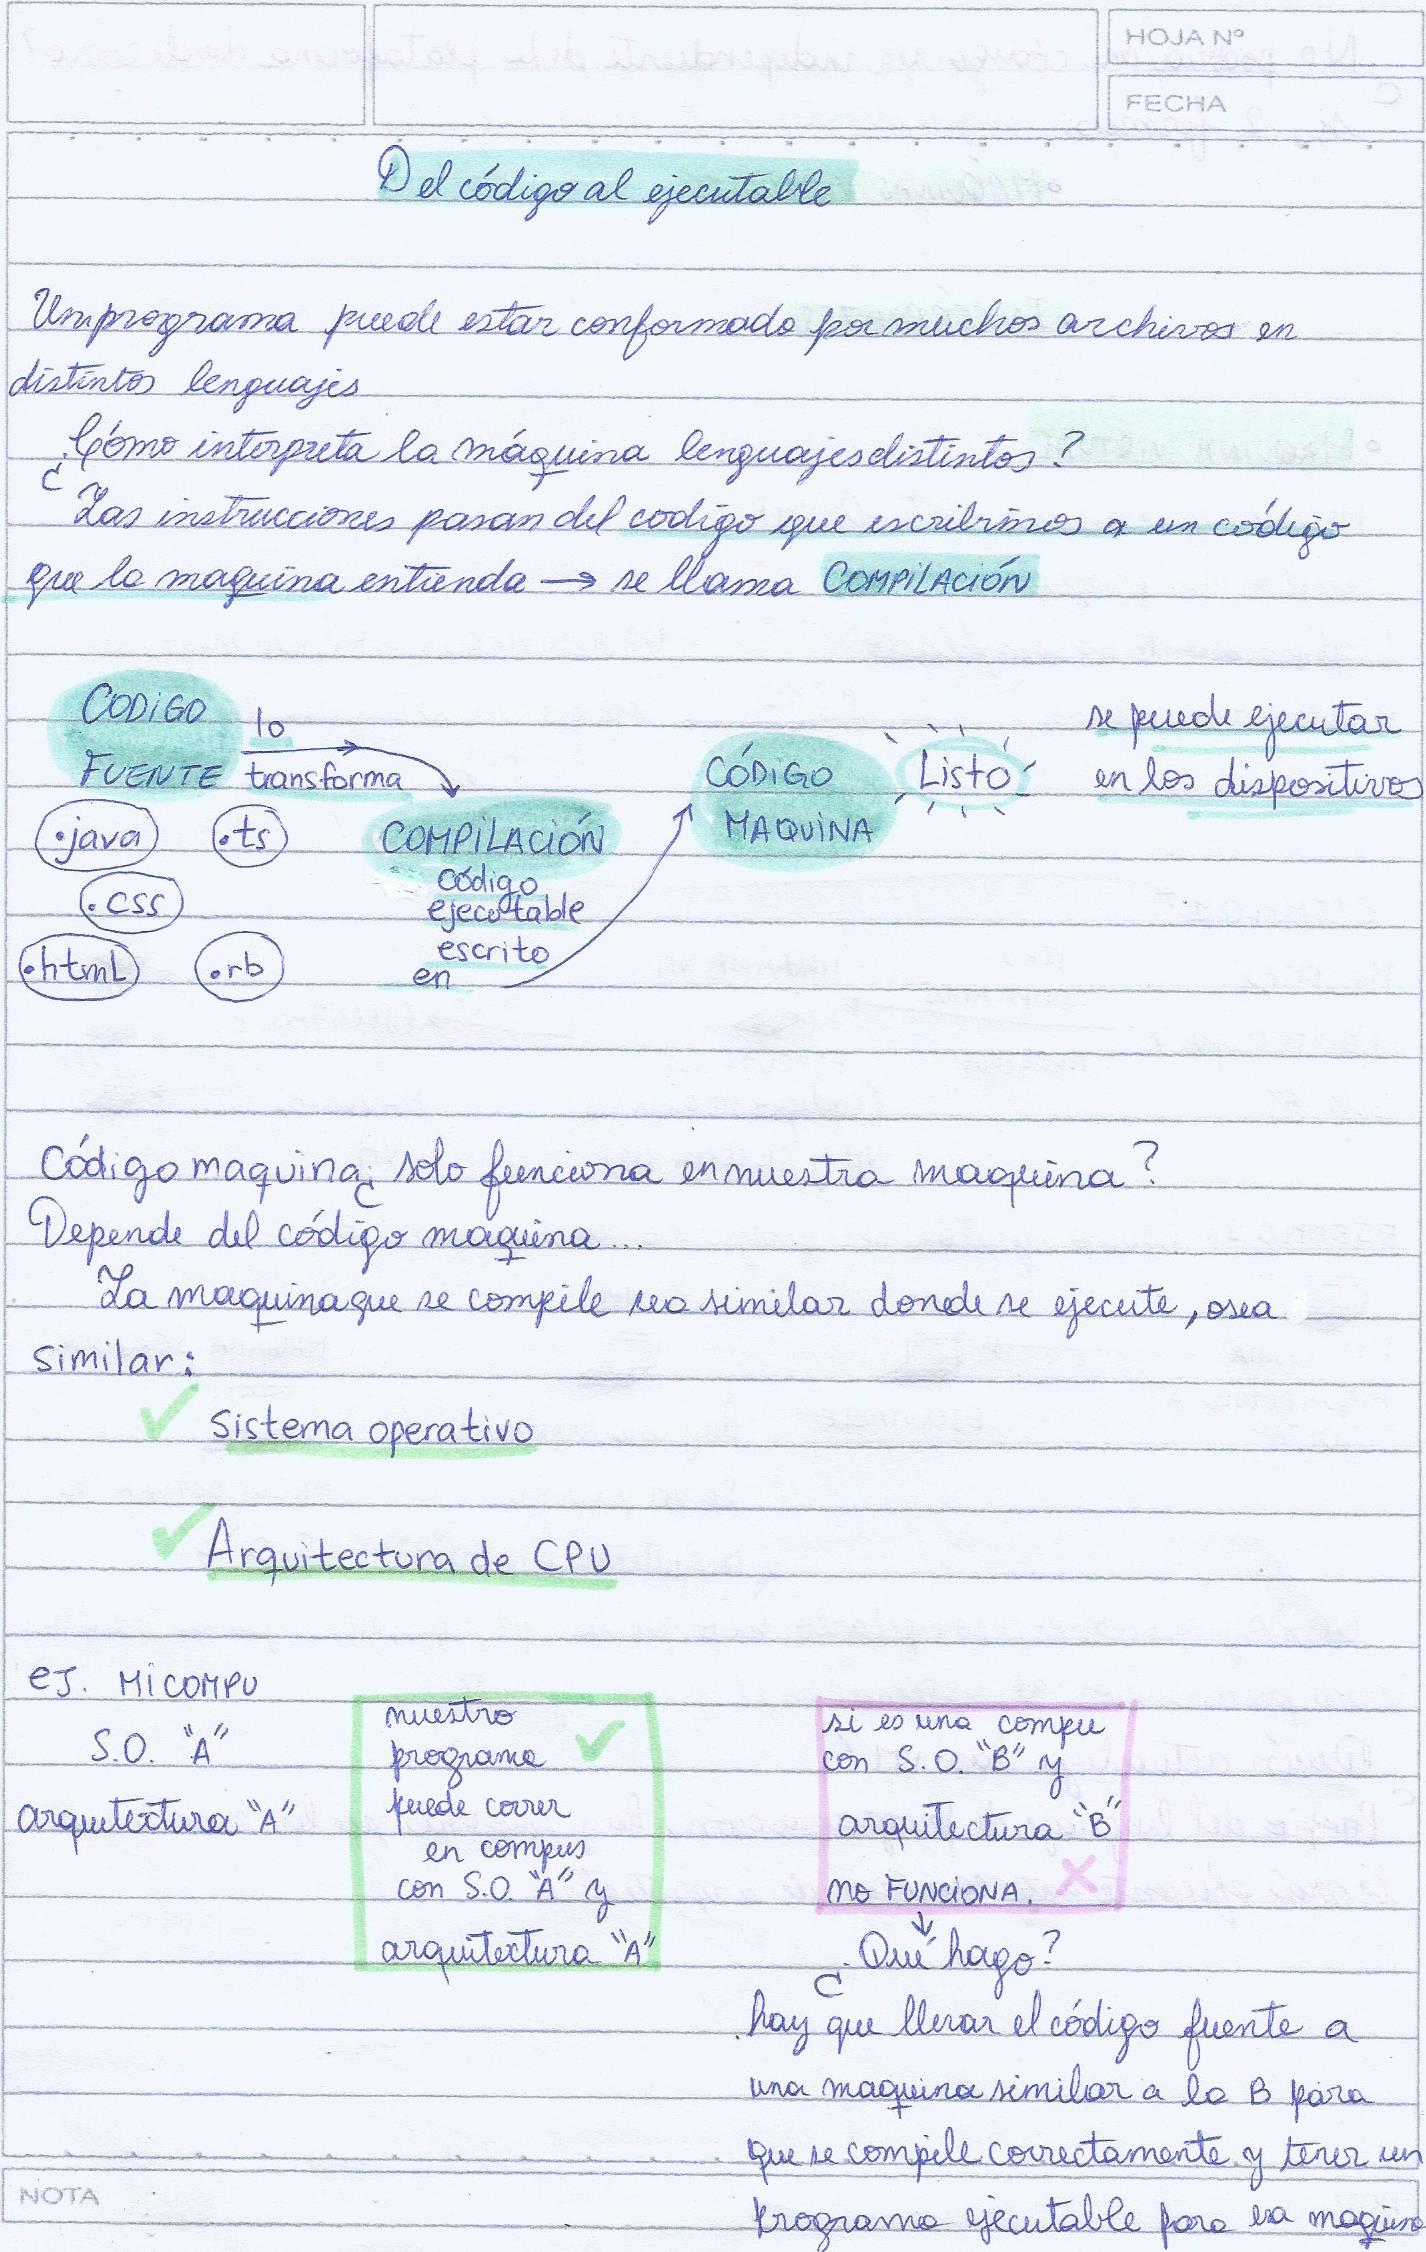 HOJA Nº
FECHA
Del código al ejecutable
Un programa puede estar conformado por muchos archivos en
distintos lenguajes
¿Cómo interpreta la máquina lenguajes distintos?
Las instrucciones pasan del codigo que escribimos a un código
que la maquina entienda → se llama COMPILACIÓN
CODIGO
FUENTE
lo
transforma
.java
.ts
.css
.html
.rb
COMPILACIÓN
código
ejecutable
escrito
en
CÓDIGO
MAQUINA
Listo
se puede ejecutar
en los dispositivos
Código maquina ¿solo funciona en nuestra maquina?
Depende del código maquina...
La maquina que se compile sea similar donde se ejecute, osea
similar:
✓ Sistema operativo
✓ Arquitectura de CPU
ej. MI COMPU
S.O. "A"
arquitectura "A"
nuestro
programa ✓
puede correr
en compus
con S.O. "A" y
arquitectura "A"
si es una compu
con S.O. "B" y
arquitectura "B"
no FUNCIONA. X
↓
¿Qué hago?
hay que llevar el código fuente a
una maquina similar a la B para
que se compile correctamente y tener un
programa ejecutable para esa maquina
NOTA